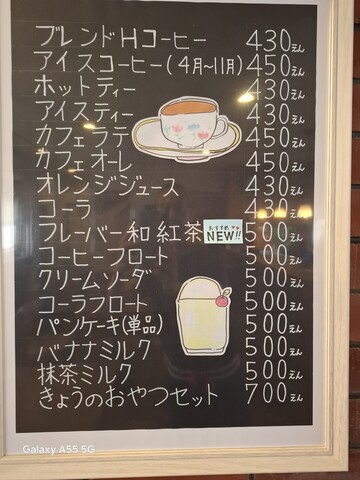 ブレンドHコーヒー 430えん
アイスコーヒー(4月~11月) 450えん
ホットティー 430えん
アイスティー 430えん
カフェラテ 450えん
カフェオーレ 450えん
オレンジジュース 430えん
コーラ 430えん
フレーバー和紅茶 おすすめです NEW!! 500えん
コーヒーフロート 500えん
クリームソーダ 500えん
コーラフロート 500えん
パンケーキ(単品) 500えん
バナナミルク 500えん
抹茶ミルク 500えん
きょうのおやつセット 700えん
Galaxy A55 5G